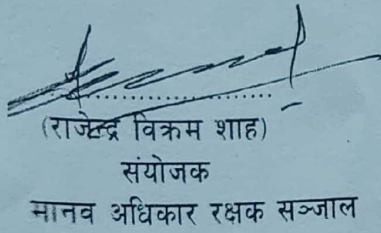 (राजेन्द्र विक्रम शाह)
संयोजक
मानव अधिकार रक्षक सञ्जाल